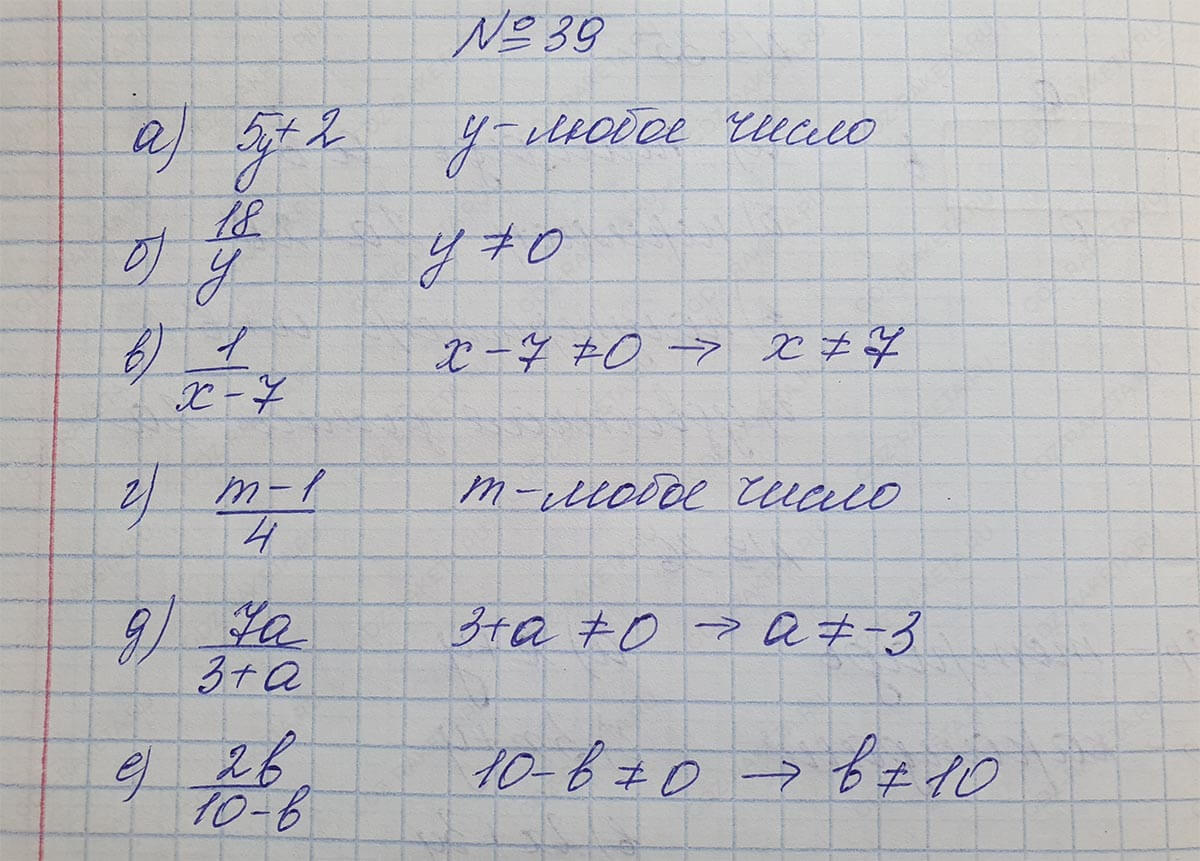 № 39
а) 5y + 2 y - любое число
б) 18/y y ≠ 0
в) 1/(x - 7) x - 7 ≠ 0 → x ≠ 7
г) (m - 1)/4 m - любое число
д) 7a/(3 + a) 3 + a ≠ 0 → a ≠ -3
е) 2b/(10 - b) 10 - b ≠ 0 → b ≠ 10